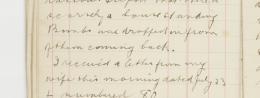 scarcely a house standing
Bombs was dropped on from
them coming back.
I received a letter from my
wife this morning dated July 23
& numbered 50